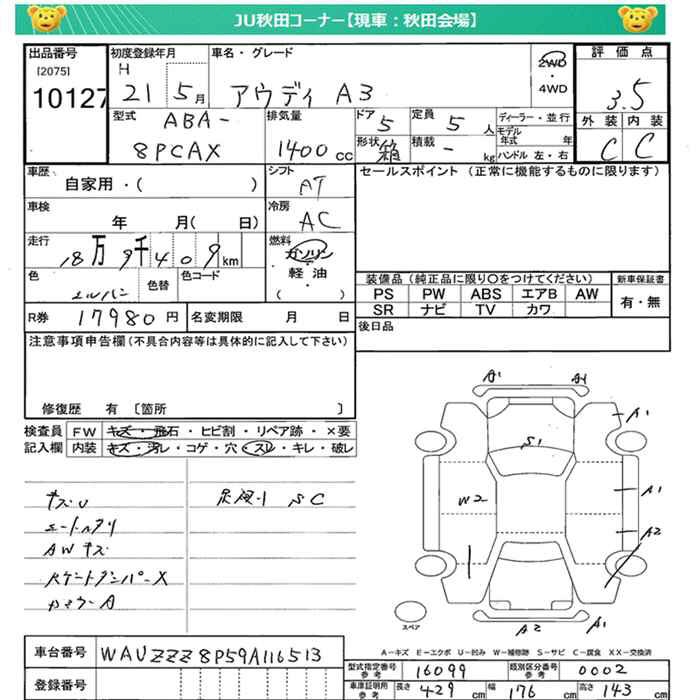 JU秋田コーナー【現車：秋田会場】
出品番号
[2075]
10127
初度登録年月
H
21 5月
車名・グレード
アウディ A3
2WD
・
4WD
評価点
3.5
外装 内装
C C
型式
ABA-
8PCAX
排気量
1400cc
ドア
5
形状
箱
定員
5人
積載
- kg
ディーラー・並行
モデル年式 年
ハンドル 左・右
車歴
自家用・( )
シフト
AT
セールスポイント (正常に機能するものに限ります)
車検
年 月( 日)
冷房
AC
走行
18万9千409km
燃料
ガソリン
・
軽油
・
( )
色
色替
色コード
装備品 (純正品に限り○をつけてください)
PS PW ABS エアB AW
SR ナビ TV カワ
新車保証書
有・無
R券 17980円
名変期限 月 日
後日品
注意事項申告欄(不具合内容等は具体的に記入して下さい)
修復歴 有 〔箇所 〕
検査員記入欄
FW キズ・飛石・ヒビ割・リペア跡・×要
内装 キズ・汚レ・コゲ・穴・スレ・キレ・破レ
キズU
足廻り SC
AWキズ
A1 A1
A1
S1
W2
A1
A2
A2 A1
スペア
A－キズ E－エクボ U－凹み W－補修跡 S－サビ C－腐食 XX－交換済
車台番号 WAUZZZ8P59A116513
登録番号
型式指定番号 参考 16099
類別区分番号 参考 0002
車庫証明用 参考 長さ 429cm 幅 176cm 高さ 143cm